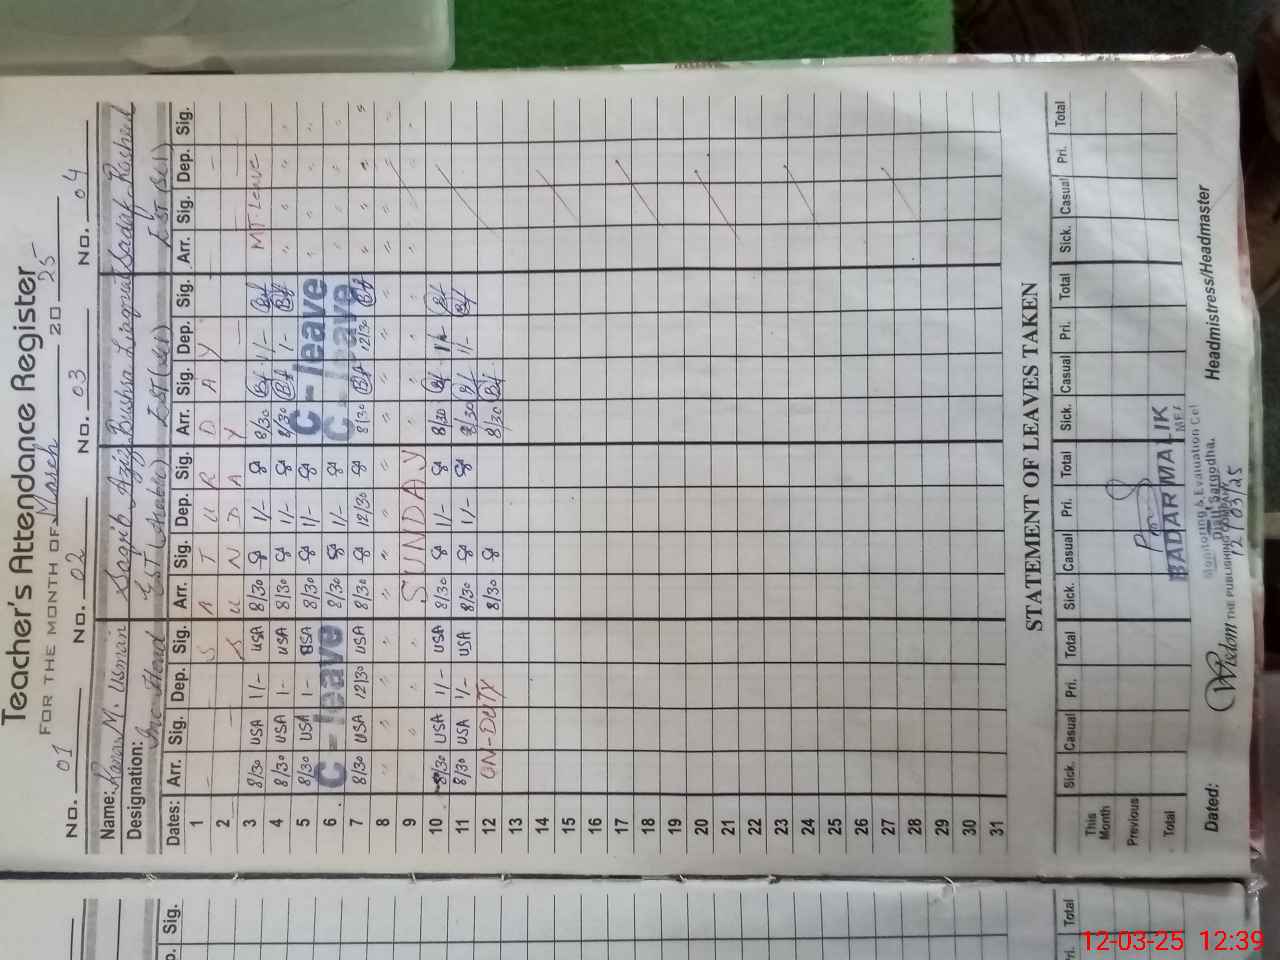 Teacher's Attendance Register
FOR THE MONTH OF March 2025
No. 01 No. 02 No. 03 No. 04
Name: Rana M. Usman Saqib Aziz Bushra Liaquat Sadaf Rasheed
Designation: Inc Head EST (Arabic) EST (SE1) EST (SE1)
Dates: Arr. Sig. Dep. Sig. Arr. Sig. Dep. Sig. Arr. Sig. Dep. Sig. Arr. Sig. Dep. Sig.
1 S A T U R D A Y
2 S U N D A Y
3 8/30 USA 1/- USA 8/30 1/- 8/30 1/- MT. Leave
4 8/30 USA 1- USA 8/30 1/- 8/30 1- " " " "
5 8/30 USA 1- USA 8/30 1/- C-leave " " " "
6 C-leave 8/30 1/- C-leave " " " "
7 8/30 USA 12/30 USA 8/30 12/30 8/30 12/30 " " " "
8 " " " " " " " " " " " "
9 SUNDAY
10 8/30 USA 1/- USA 8/30 1/- 8/30 1/-
11 8/30 USA 1/- USA 8/30 1/- 8/30 1/-
12 ON-DUTY 8/30 8/30
13
14
15
16
17
18
19
20
21
22
23
24
25
26
27
28
29
30
31
STATEMENT OF LEAVES TAKEN
Sick. Casual Pri. Total Sick. Casual Pri. Total Sick. Casual Pri. Total Sick. Casual Pri. Total
This Month
Previous
Total
BADAR MALIK
Monitoring & Evaluation Cell
Distt. Sargodha.
12/03/25
Dated: Wisdom THE PUBLISHING COMPANY Headmistress/Headmaster
p. Sig.
Pri. Total
12-03-25 12:39